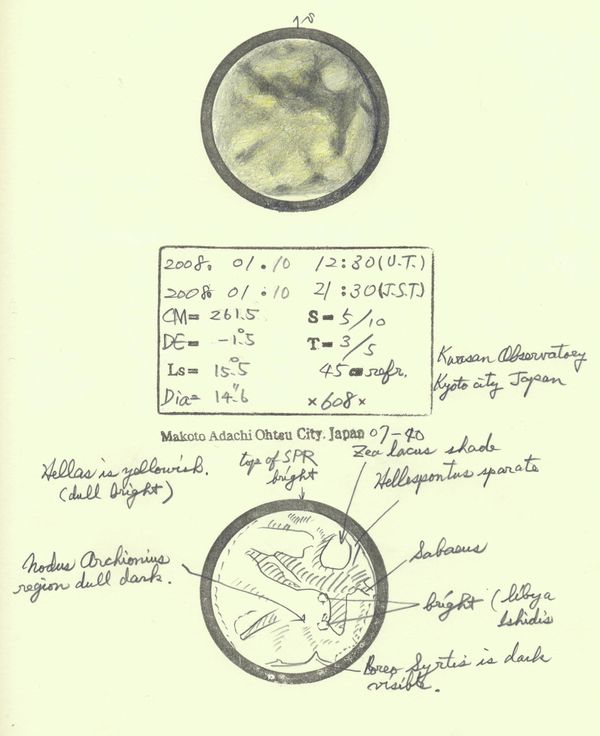 2008. 01.10 12:30 (U.T.)
2008. 01.10 21:30 (J.S.T)
CM= 261.5 S= 5/10
DE= -1.°5 T= 3/5
Ls= 15.°5 45 cm refr.
Dia= 14."6 ×608×
Kwasan Observatory
Kyoto city Japan
Makoto Adachi Ohtsu City. Japan 07-40
Hellas is yellowish.
(dull bright)
top of SPR
bright
Zea lacus shade
Hellespontus sparate
Sabaeus
Nodus Archionius
region dull dark.
bright (libya
Ishidis
Boreo Syrtis is dark
visible.